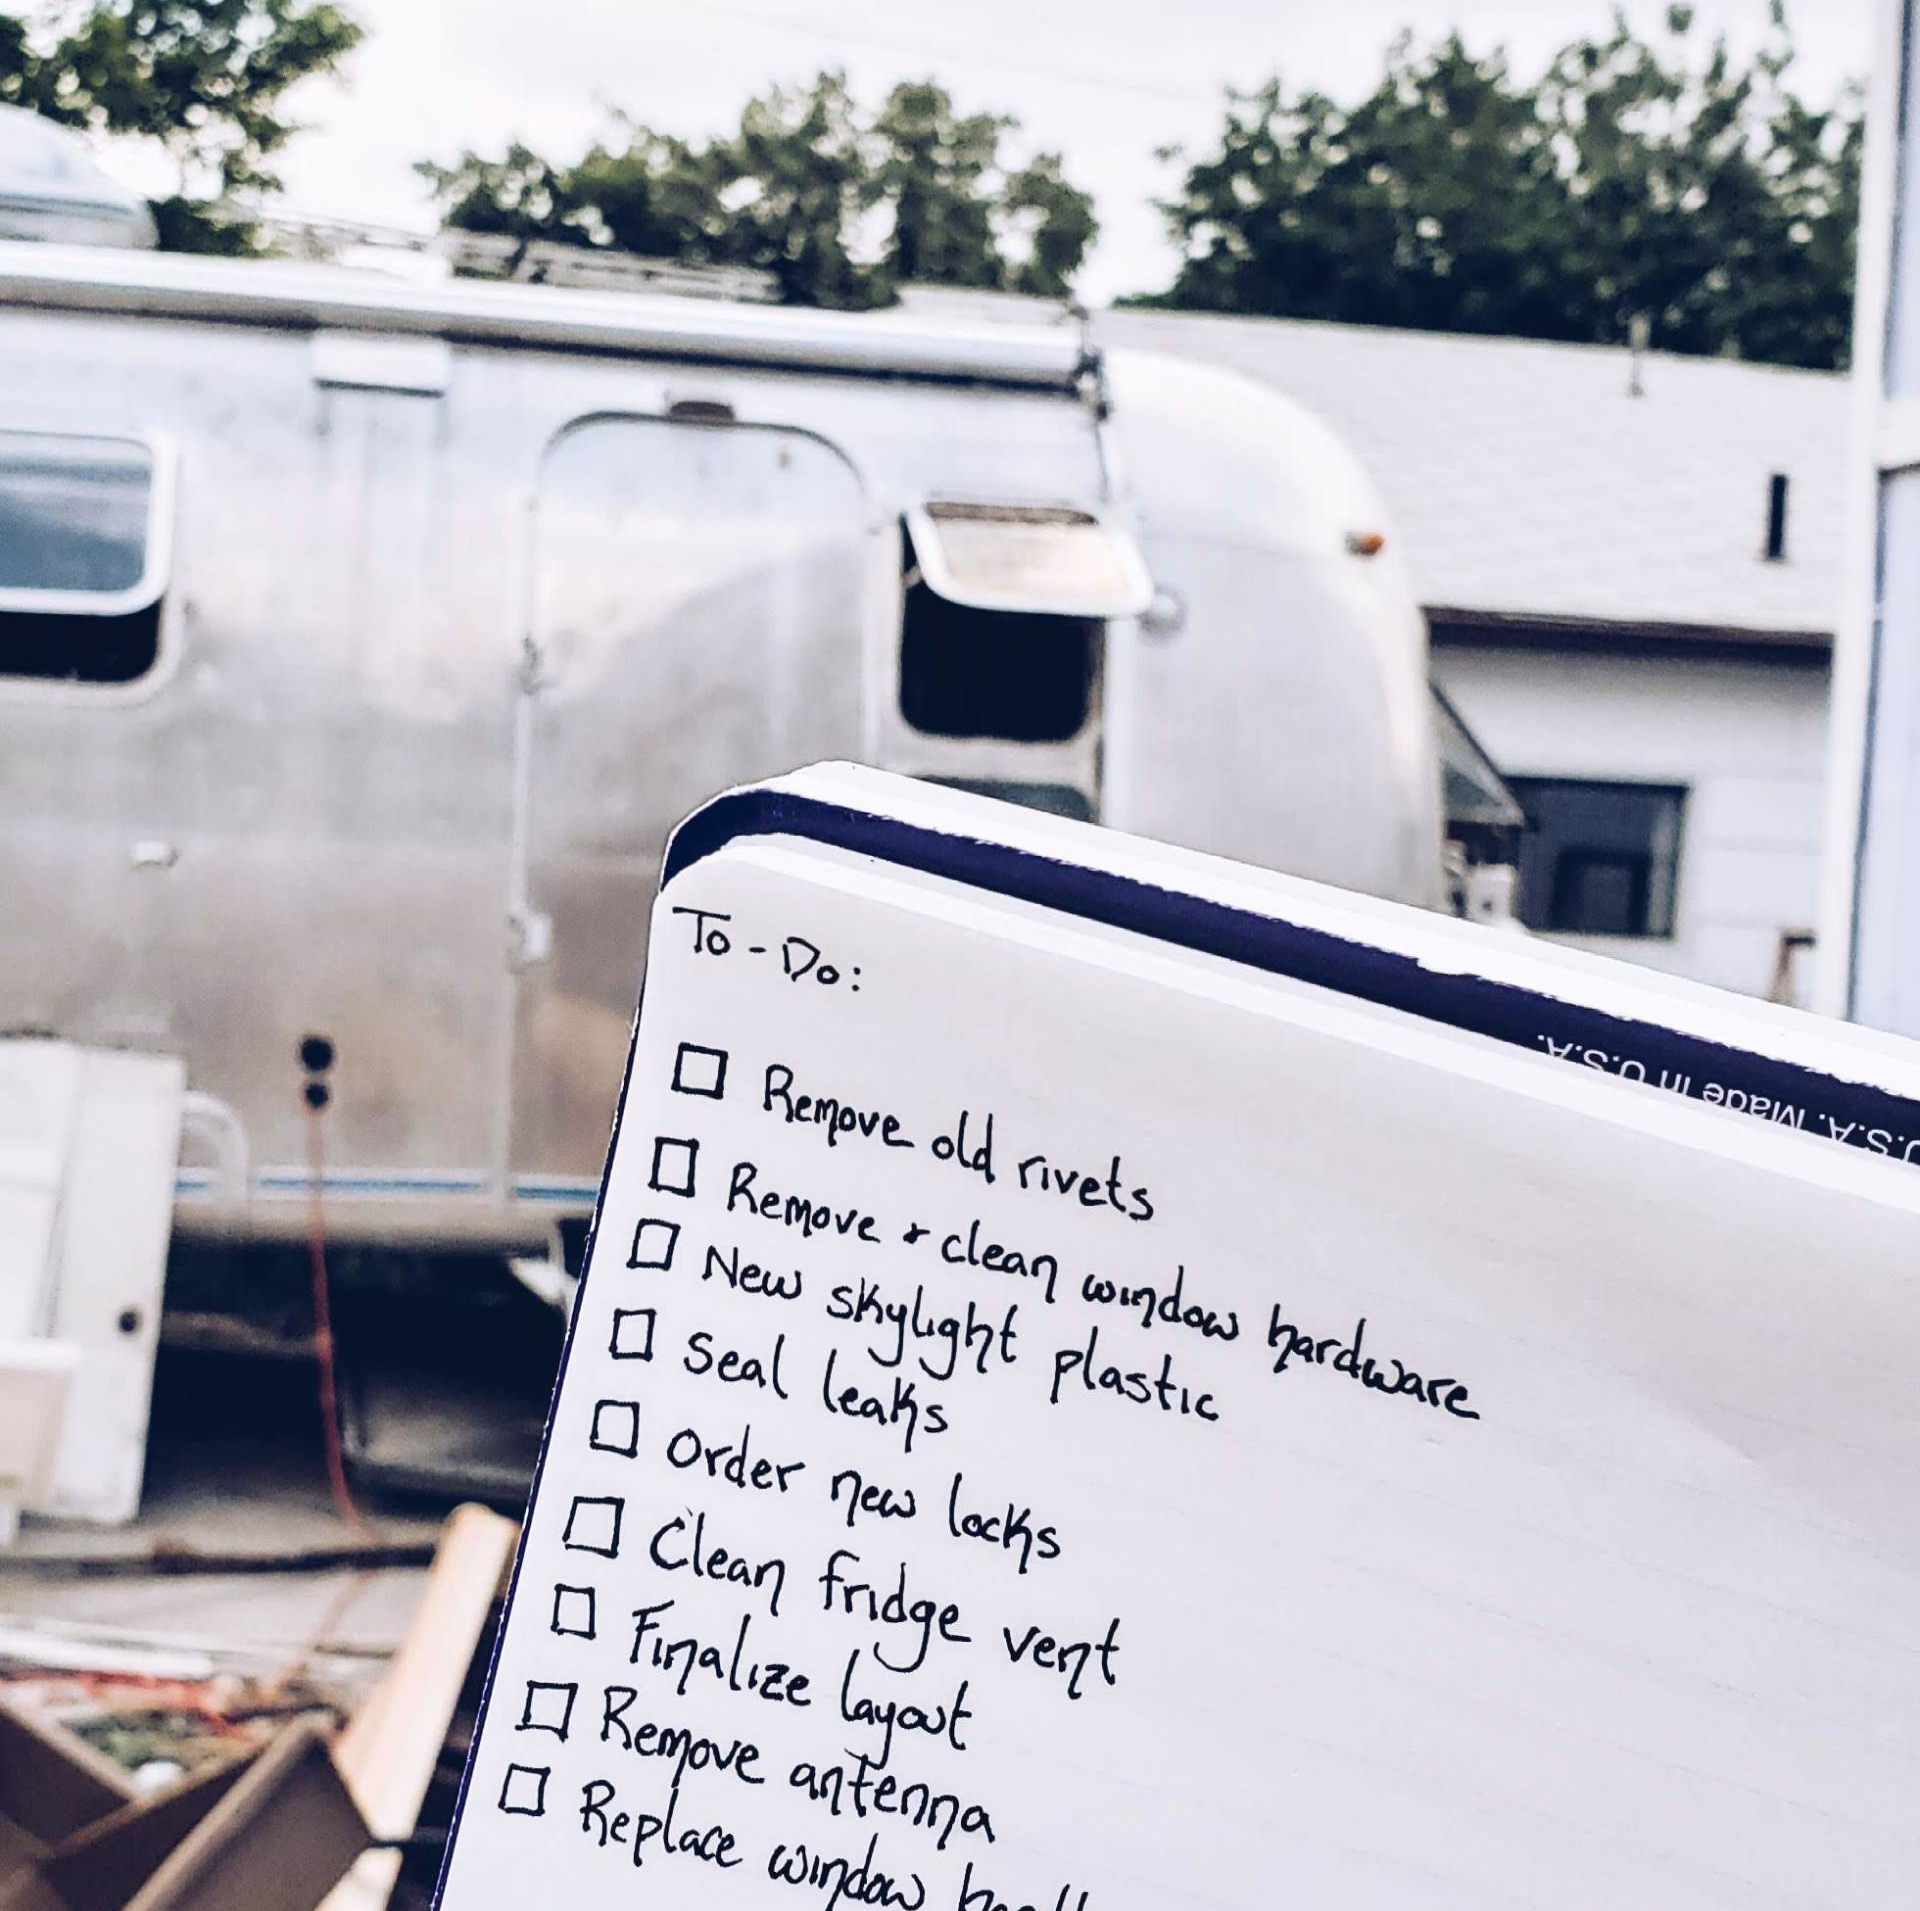 To-Do:
Remove old rivets
Remove + clean window hardware
New skylight plastic
Seal leaks
Order new locks
Clean fridge vent
Finalize layout
Remove antenna
Replace window
U.S.A. Made in U.S.A.